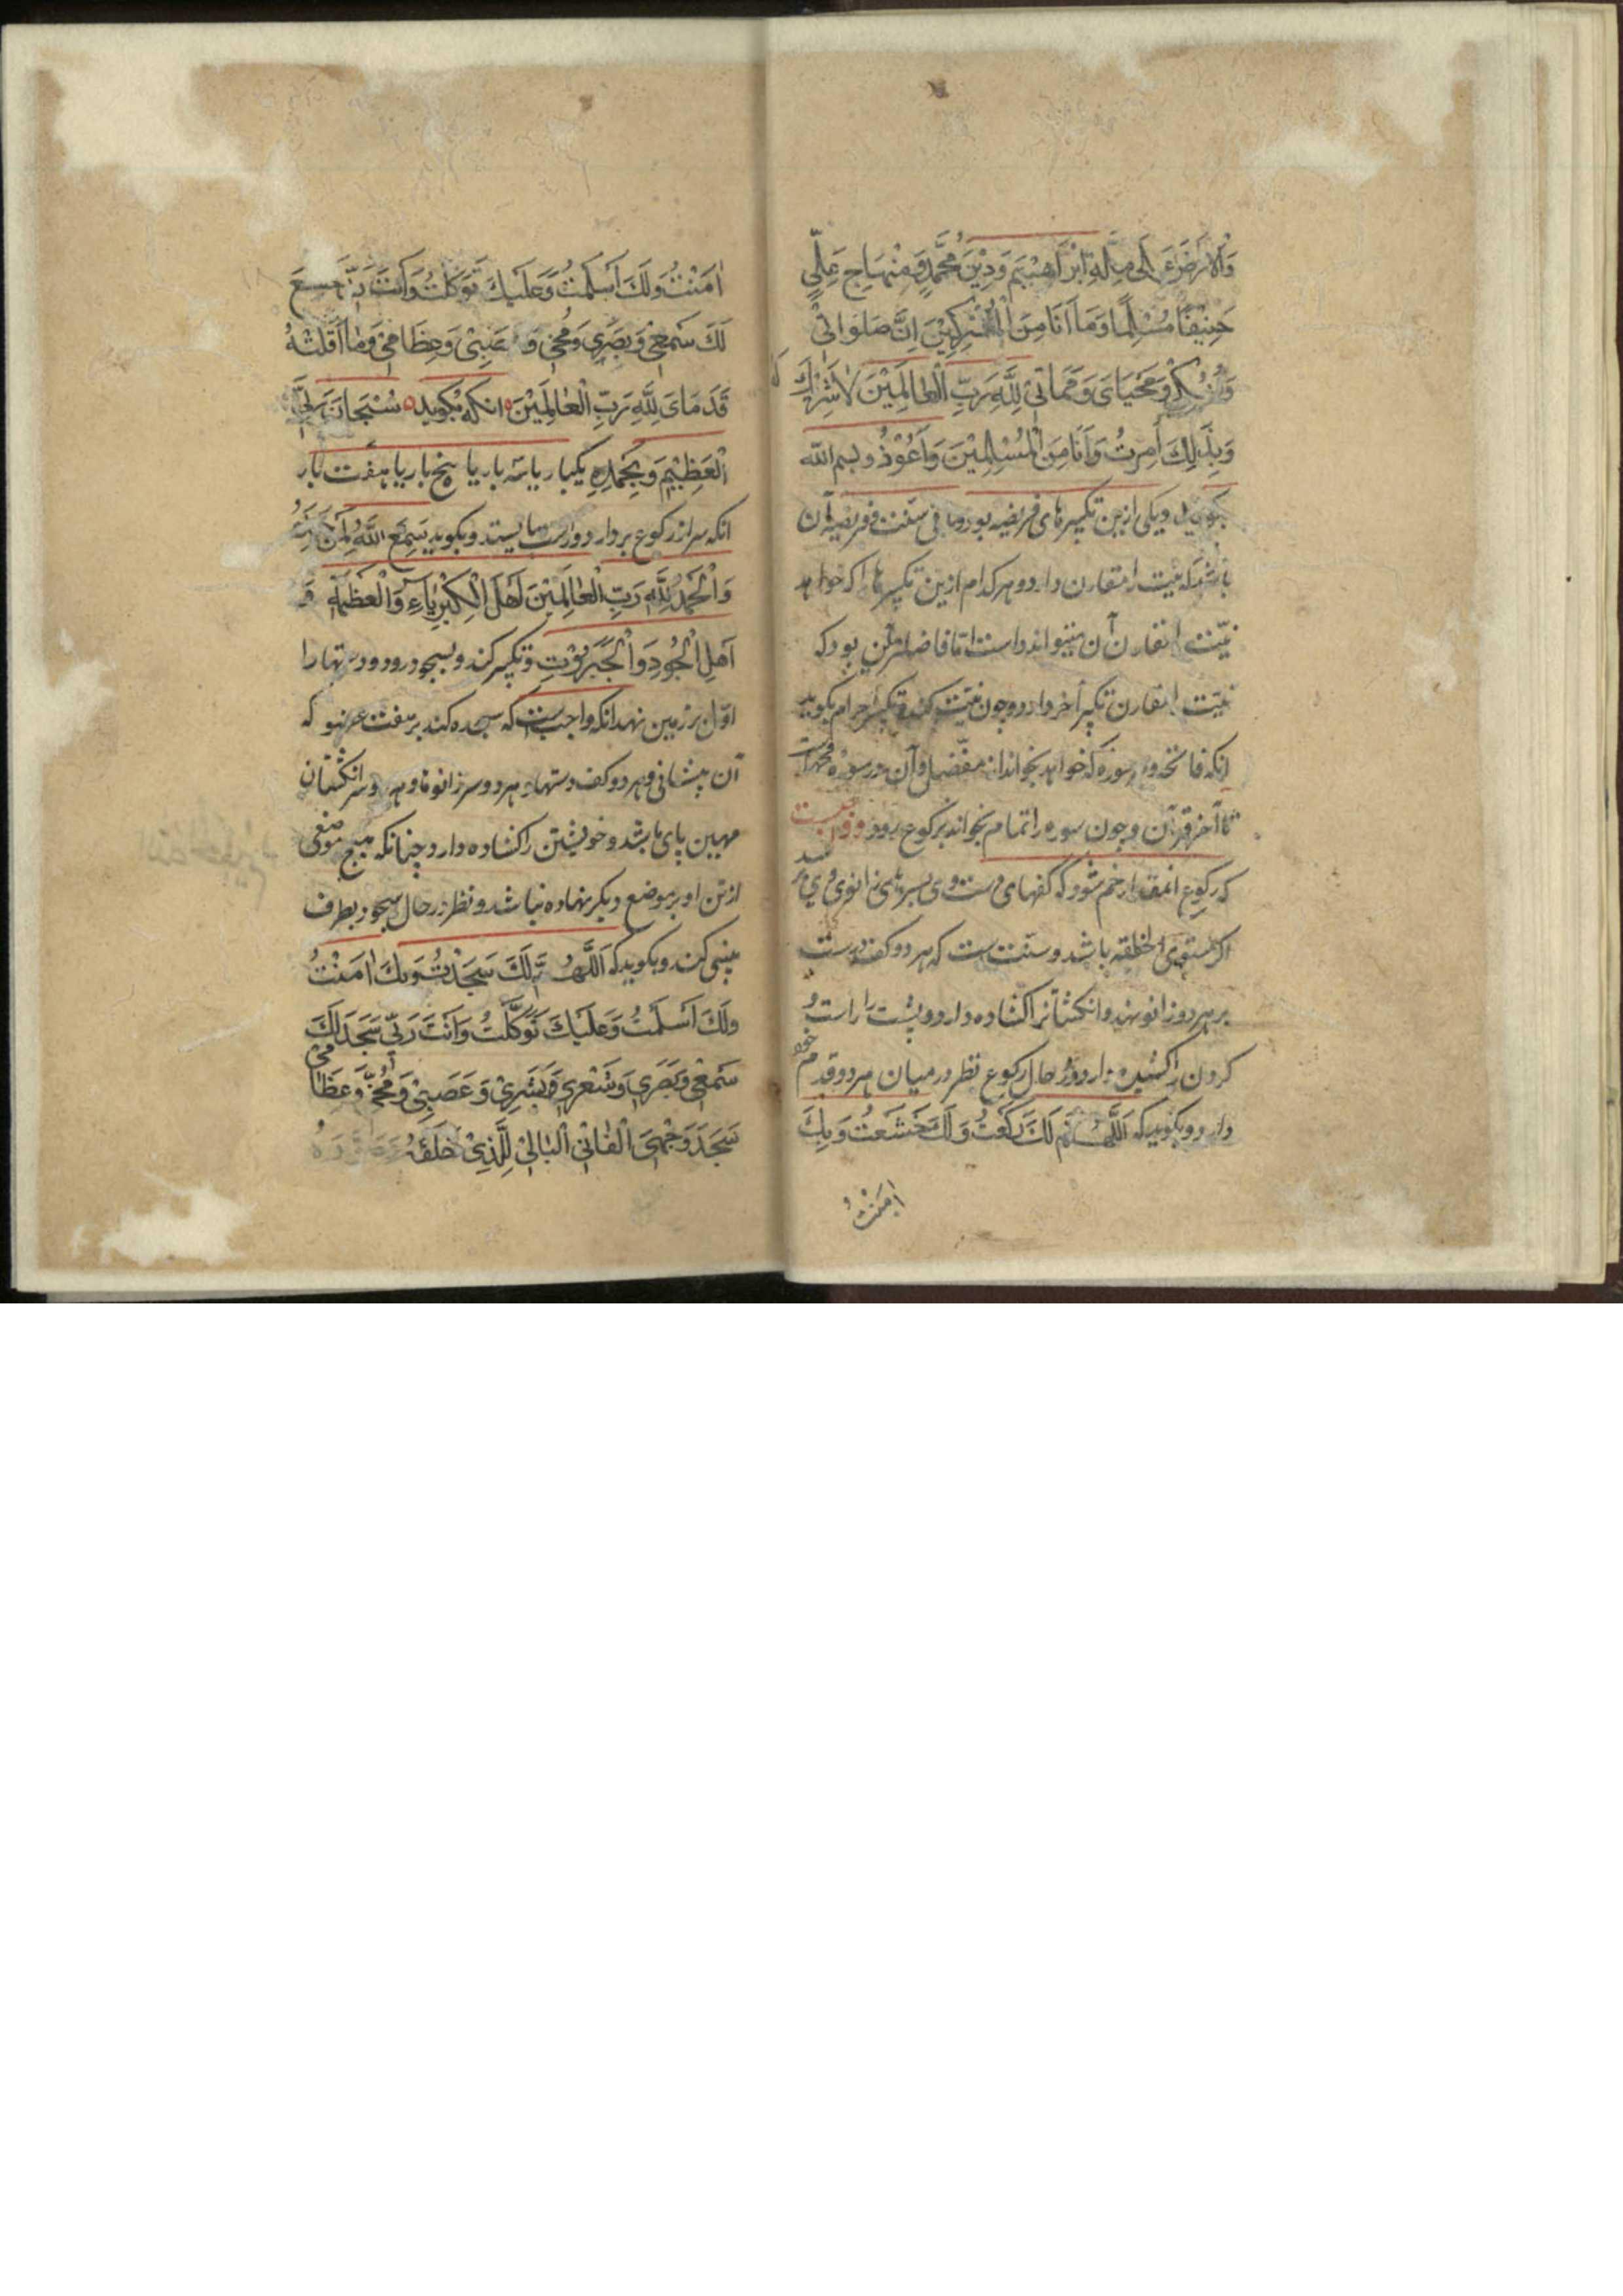 وَالْاَرْضَ عَلٰى مِلَّةِ اِبْرَاهِيْمَ وَدِيْنِ مُحَمَّدٍ وَمِنْهَاجِ عَلِيٍّ
حَنِيْفًا مُسْلِمًا وَمَا اَنَا مِنَ الْمُشْرِكِيْنَ اِنَّ صَلَوَاتِىْ
وَنُسُكِىْ وَمَحْيَاىَ وَمَمَاتِىْ لِلّٰهِ رَبِّ الْعَالَمِيْنَ لَا شَرِيْكَ لَهُ
وَبِذٰلِكَ اُمِرْتُ وَاَنَا مِنَ الْمُسْلِمِيْنَ وَاَعُوْذُ و بسم الله
بگوید و یکی ازین تکبیرهای فریضه بود و باقی سنت و فریضه آن
باشد که نیت را مقارن دارد و هر کدام ازین تکبیرها را که خواهد
نیّت را مقارن آن میتواند داشت امّا فاضلترین آن بود که
نیّت را مقارن تکبیر آخر دارد و چون نیّت کند و تکبیر احرام بگوید
انکه فاتحه و سوره که خواهد بخواند از مفصّل و آن در سوره محمد است
تا آخر قرآن و چون سوره را تمام بخواند برکوع رود و واجبست
که رکوع انمقدار خم شود که کفهای دست وی بسرهای زانوی وی رسد
اگر مستوی الخلقه باشد و سنت است که هر دو کف دست
بر هر دو زانو نهد و انگشتانرا گشاده دارد و پشت را راست و
گردن را کشیده دارد و در حال رکوع نظر در میان هر دو قدم خود
دارد و بگوید که اَللّٰهُمَّ لَكَ رَكَعْتُ وَلَكَ خَشَعْتُ وَبِكَ
اٰمَنْتُ
اٰمَنْتُ وَلَكَ اَسْلَمْتُ وَعَلَيْكَ تَوَكَّلْتُ وَاَنْتَ رَبِّىْ خَشَعَ
لَكَ سَمْعِىْ وَبَصَرِىْ وَمُخِّىْ وَعَصَبِىْ وَعِظَامِىْ وَمَا اَقَلَّتْهُ
قَدَمَاىَ لِلّٰهِ رَبِّ الْعٰالَمِيْنَ انکه بگوید سُبْحَانَ رَبِّىَ
الْعَظِيْمِ وَبِحَمْدِهِ یکبار یا سه بار یا پنج بار یا هفت بار
انکه سر از رکوع بردارد و راست بایستد و بگوید سَمِعَ اللّٰهُ لِمَنْ حَمِدَهُ
وَالْحَمْدُ لِلّٰهِ رَبِّ الْعٰالَمِيْنَ اَهْلِ الْكِبْرِيَاءِ وَالْعَظَمَةِ وَ
اَهْلِ الْجُوْدِ وَالْجَبَرُوْتِ و تکبیر کند و بسجود رود و دستها را
اوّل بر زمین نهد انکه واجب است که سجده کند بر هفت عضو که
آن پیشانی و هر دو کف دستها و هر دو سر زانو و هر دو سر انگشتان
مهین پای باشد و خویشتن را گشاده دارد چنانکه هیچ موضعی
از تن او بر موضع دیگر نهاده نباشد و نظر در حال سجود بطرف
بینی کند و بگوید که اَللّٰهُمَّ لَكَ سَجَدْتُ وَبِكَ اٰمَنْتُ
وَلَكَ اَسْلَمْتُ وَعَلَيْكَ تَوَكَّلْتُ وَاَنْتَ رَبِّىْ سَجَدَ لَكَ
سَمْعِىْ وَبَصَرِىْ وَشَعْرِىْ وَبَشَرِىْ وَعَصَبِىْ وَمُخِّىْ وَعِظَامِىْ
سَجَدَ وَجْهِىَ الْفَانِى الْبَالِىْ لِلَّذِىْ خَلَقَهُ وَصَوَّرَهُ